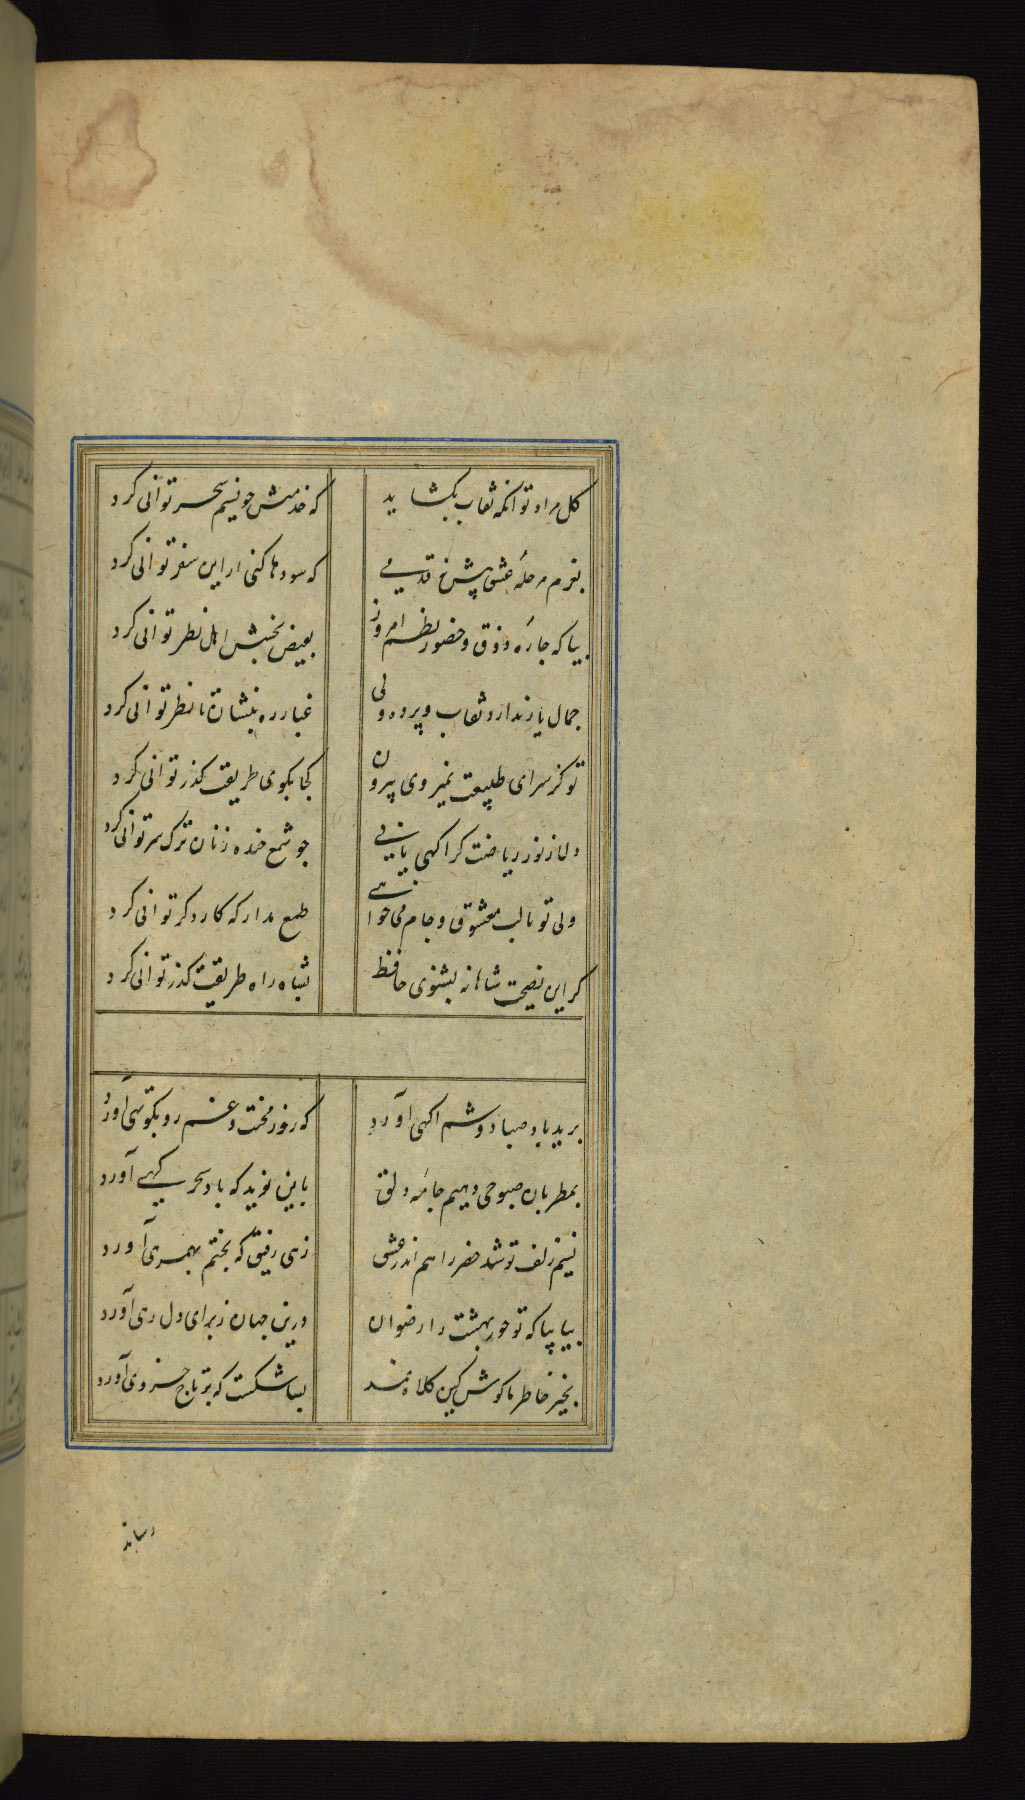 کل مراد تو آنکه نقاب بکشاید که خدمتش جو نسیم سحر توانی کرد
بعزم مرحلهٔ عشق پیش نه قدمی که سودها کنی ار این سفر توانی کرد
بیا که جارهٔ ذوق و حضور و نظم امروز بفیض بخشش اهل نظر توانی کرد
جمال یار ندارد نقاب و پرده ولی غبار ره بنشان تا نظر توانی کرد
تو کز سرای طبیعت نمیروی بیرون کجا بکوی طریقت کذر توانی کرد
دلا ز نور ریاضت کر آکهی یابی جو شمع خنده زنان ترک سر توانی کرد
ولی تو تا لب معشوق و جام می خواهی طمع مدار که کار دکر توانی کرد
کر این نصیحت شاهانه بشنوی حافظ بشاه راه طریقت کذر توانی کرد
برید باد صبا دوشم آکهی آورد که روز محنت و غم رو بکوتهی آورد
بمطربان صبوحی دهیم جامهٔ دلق باین نوید که باد سحر کهی آورد
نسیم زلف تو شد خضر راهم اندر عشق زهی رفیق که بختم بهمرهی آورد
بیا بیا که تو حور بهشت را رضوان درین جهان ز برای دل رهی آورد
بخیر خاطر ما کوش کین کلاه نمد بسا شکست که بر تاج خسروی آورد
رساند